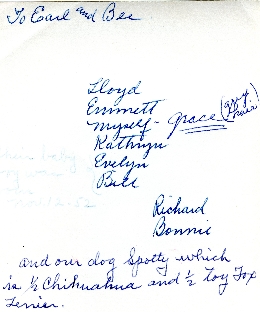 To Earl and Bee
Lloyd
Emmett
Myself - Grace
Kathryn
Evelyn
Bill
Richard
Bonnie
and our dog Spotty which
is ½ Chihuahua and ½ Toy Fox
Terrier.